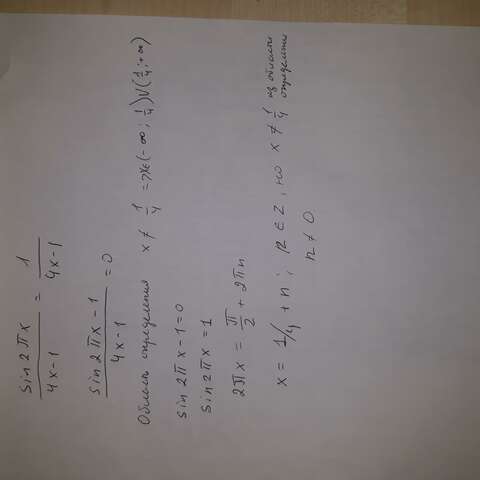 sin2πx / 4x-1 = 1 / 4x-1
sin2πx-1 / 4x-1 = 0
Область определения x ≠ 1/4 => x∈(-∞; 1/4)∪(1/4; +∞)
sin2πx-1=0
sin2πx=1
2πx = π/2 + 2πn
x = 1/4 + n; n ∈ Z, но x ≠ 1/4 из области определения
n ≠ 0